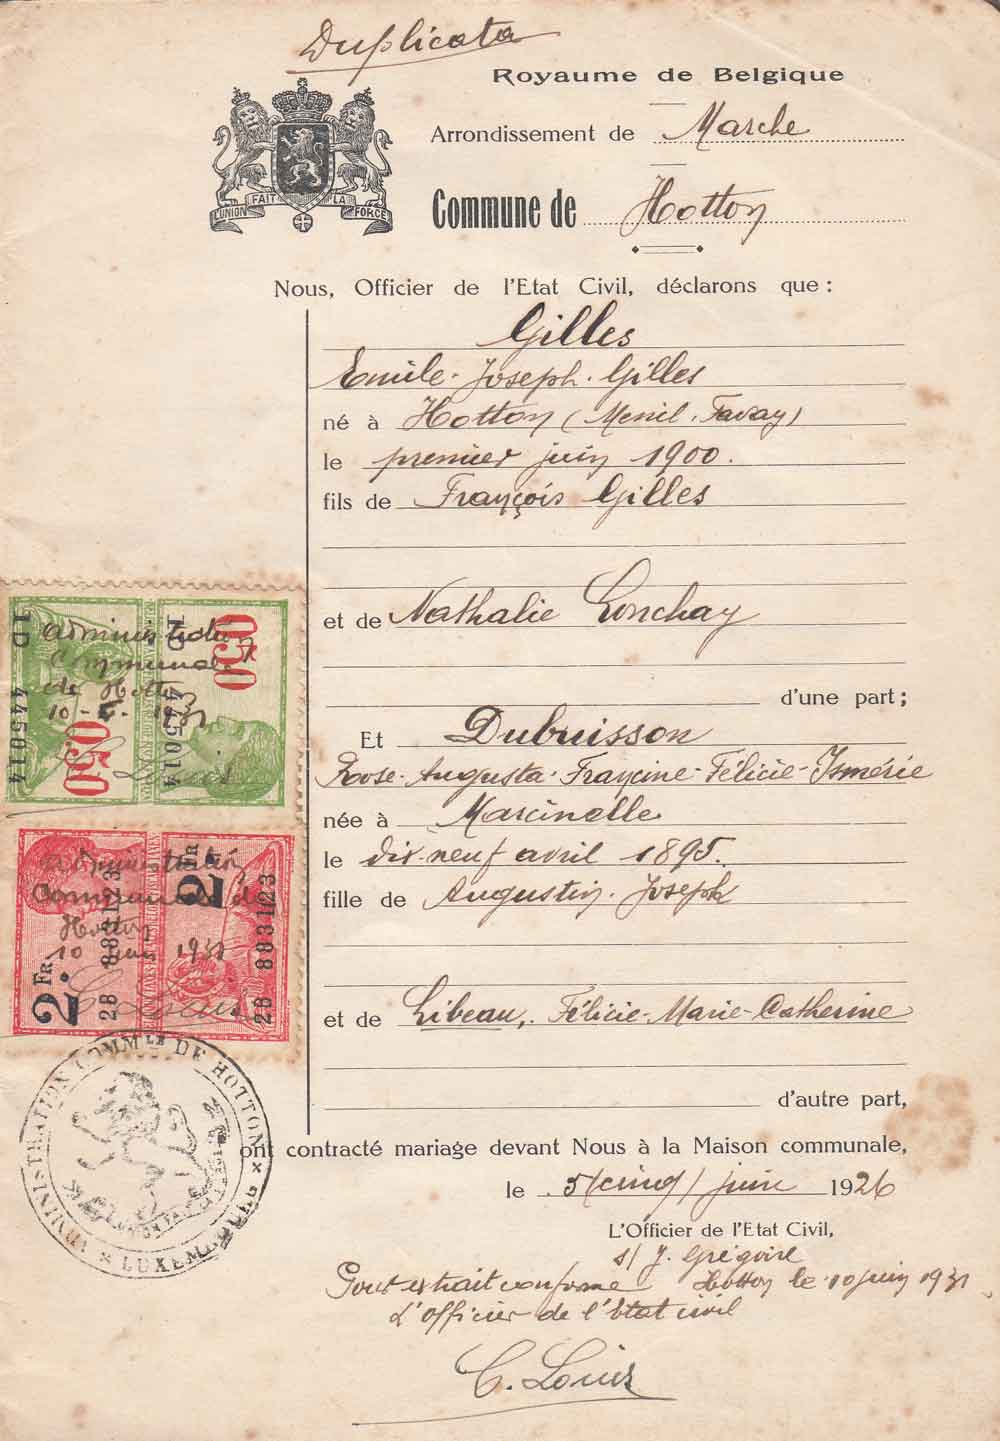 Duplicata
Royaume de Belgique
Arrondissement de Marche
L'UNION FAIT LA FORCE
Commune de Hotton
Nous, Officier de l'Etat Civil, déclarons que :
Gilles
Emile-Joseph-Gilles
né à Hotton (Menil-Favay)
le premier juin 1900.
fils de François Gilles
et de Nathalie Lonchay
d'une part ;
Et Dubuisson
Rose-Augusta-Francine-Félicie-Ismérie
née à Marcinelle
le dix-neuf avril 1895.
fille de Augustin-Joseph
et de Libeau, Félicie-Marie-Catherine
d'autre part,
ont contracté mariage devant Nous à la Maison communale,
le 5 (cinq) juin 1926
L'Officier de l'Etat Civil,
s/ J. Grégoire
Pour extrait conforme Hotton le 10 juin 1931
L'Officier de l'Etat civil
C. Louis
Administration
Communale
de Hotton
10-6-1931
C. Louis
1D 445014
1D 445014
0.50
0.50
Administration
Communale de
Hotton
10 juin 1931
C. Louis
2 FR
2 FR
2B 883123
2B 883123
ADMINISTRATION COMMLE DE HOTTON
LUXEMBOURG